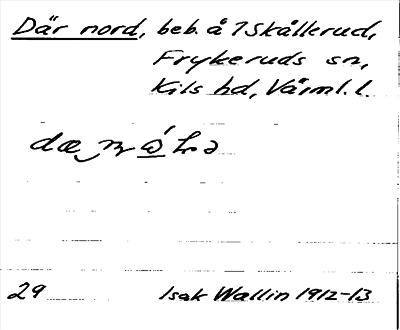 Där nord, beb. å ? Skållerud,
Frykeruds sn,
Kils hd, Värml. l.
29 Isak Wallin 1912-13